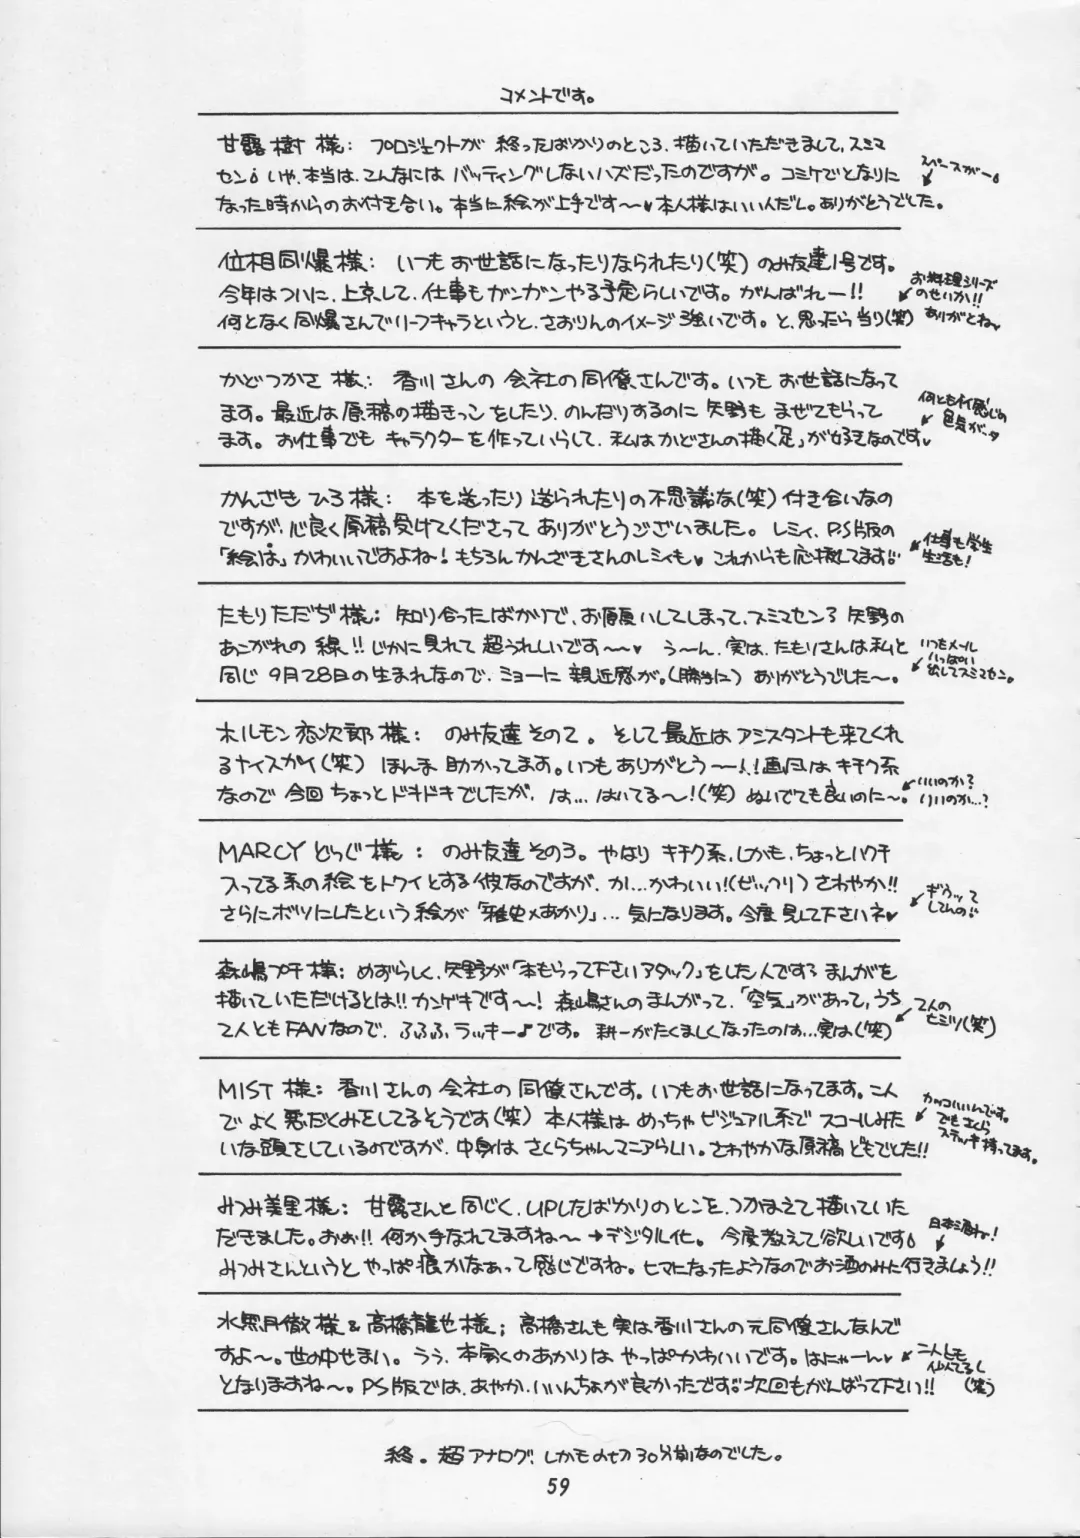 コメントです。
甘露樹 様: プロジェクトが 終ったばかりのところ、描いていただきまして、スミマ
セン。いや、本当は、こんなには バッティングしないハズだったのですが。コミケでとなりに
なった時からのお付き合い。本当に絵が上手です〜♥本人様はいい人だし。ありがとうでした。
スペースがー。
位相同爆様: いつも お世話になったりなられたり(笑) のみ友達1号です。
今年はついに、上京して、仕事もガンガンやる予定らしいです。がんばれー!!
何となく同爆さんでリーフキャラというと、さおりんのイメージ強いです。と、思ったら当り(笑)
お料理シリーズ
のせいか!!
ありがとね♥
かどつかさ 様: 香川さんの 会社の同僚さんです。いつも お世話になって
ます。最近は原稿の描きっこをしたり、のんだりするのに 矢野も まぜてもらって
ます。お仕事でも キャラクターを作っていらして、私は かどさんの描く「足」が好きなのです♥
何ともイイ感じの
色気が〜
かんざき ひろ 様: 本を送ったり 送られたりの不思議な(笑) 付き合いなの
ですが、心良く原稿受けてくださって ありがとうございました。レミィ、PS版の
「絵は」かわいいですよね! もちろん かんざきさんのレミィも♥ これからも応援してます!!
仕事も学生
生活も!
たもりただぢ様: 知り合ったばかりで、お願いしてしまって、スミマセン 矢野の
あこがれの 線!! じかに見れて 超うれしいです〜〜♥ う〜ん、実は、たもりさんは私と
同じ 9月28日の生まれなので、ミョーに 親近感が。(勝手に) ありがとうでした〜。
いつもメール
いっぱい
出してスミマセン。
ホルモン恋次郎 様: のみ友達 その2。そして最近は アシスタントも来てくれ
るナイスガイ(笑) ほんま 助かってます。いつもありがとう〜!! 画風は キチク系
なので 今回 ちょっとドキドキでしたが、は... はいてる〜!(笑) ぬいでても良いのに〜。
いいのか?
いいのか…?
MARCY どっぐ 様: のみ友達 その3。やはり キチク系、しかも、ちょっとハクチ
入ってる系の絵 をトクイとする彼なのですが、か!...かわいい!(ビックリ) さわやか!!
さらにボツにしたという絵が 「雅史×あかり」... 気になります。今度見して下さいネ♥
ギウッて
してんの!!
森嶋プチ 様: めずらしく、矢野が「本もらって下さいアタック」をした人です まんがを
描いていただけるとは!! カンゲキです〜! 森嶋さんのまんがって、「空気」があって、うち
2人ともFANなので、ふふふ、ラッキー♪です。耕一がたくましくなったのは...実は(笑)
2人の
ヒミツ(笑)
MIST 様: 香川さんの 会社の 同僚さんです。いつもお世話になってます。二人
で よく 悪だくみをしてるそうです(笑) 本人様は めっちゃ ビジュアル系で スコールみた
いな頭をしているのですが、中身は さくらちゃんマニアらしい。さわやかな原稿 どもでした!!
カッコいいんです。
でも さくら
ステッキ持ってます。
みつみ美里 様: 甘露さんと 同じく、UPしたばかりのとこを、つかまえて 描いていた
だきました。おぉ!! 何か手なれてますね〜 →デジタル化。今度教えて欲しいです。
みつみさんというと やっぱ 痕かなぁって 感じですね。ヒマになったようなのでお酒のみに行きましょう!!
日本酒ね!
水無月徹 様 & 高橋龍也 様; 高橋さんも 実は香川さんの元同僚さんなんで
すよ〜。世の中せまい。うう、本家のあかりは やっぱかわいいです。はにゃーん♥
となりますね〜。PS版では、あやか、いいんちょが良かったです!!次回もがんばって下さい!!
二人とも
似てるし
(笑)
終。超アナログ、しかも 30分前なのでした。
59